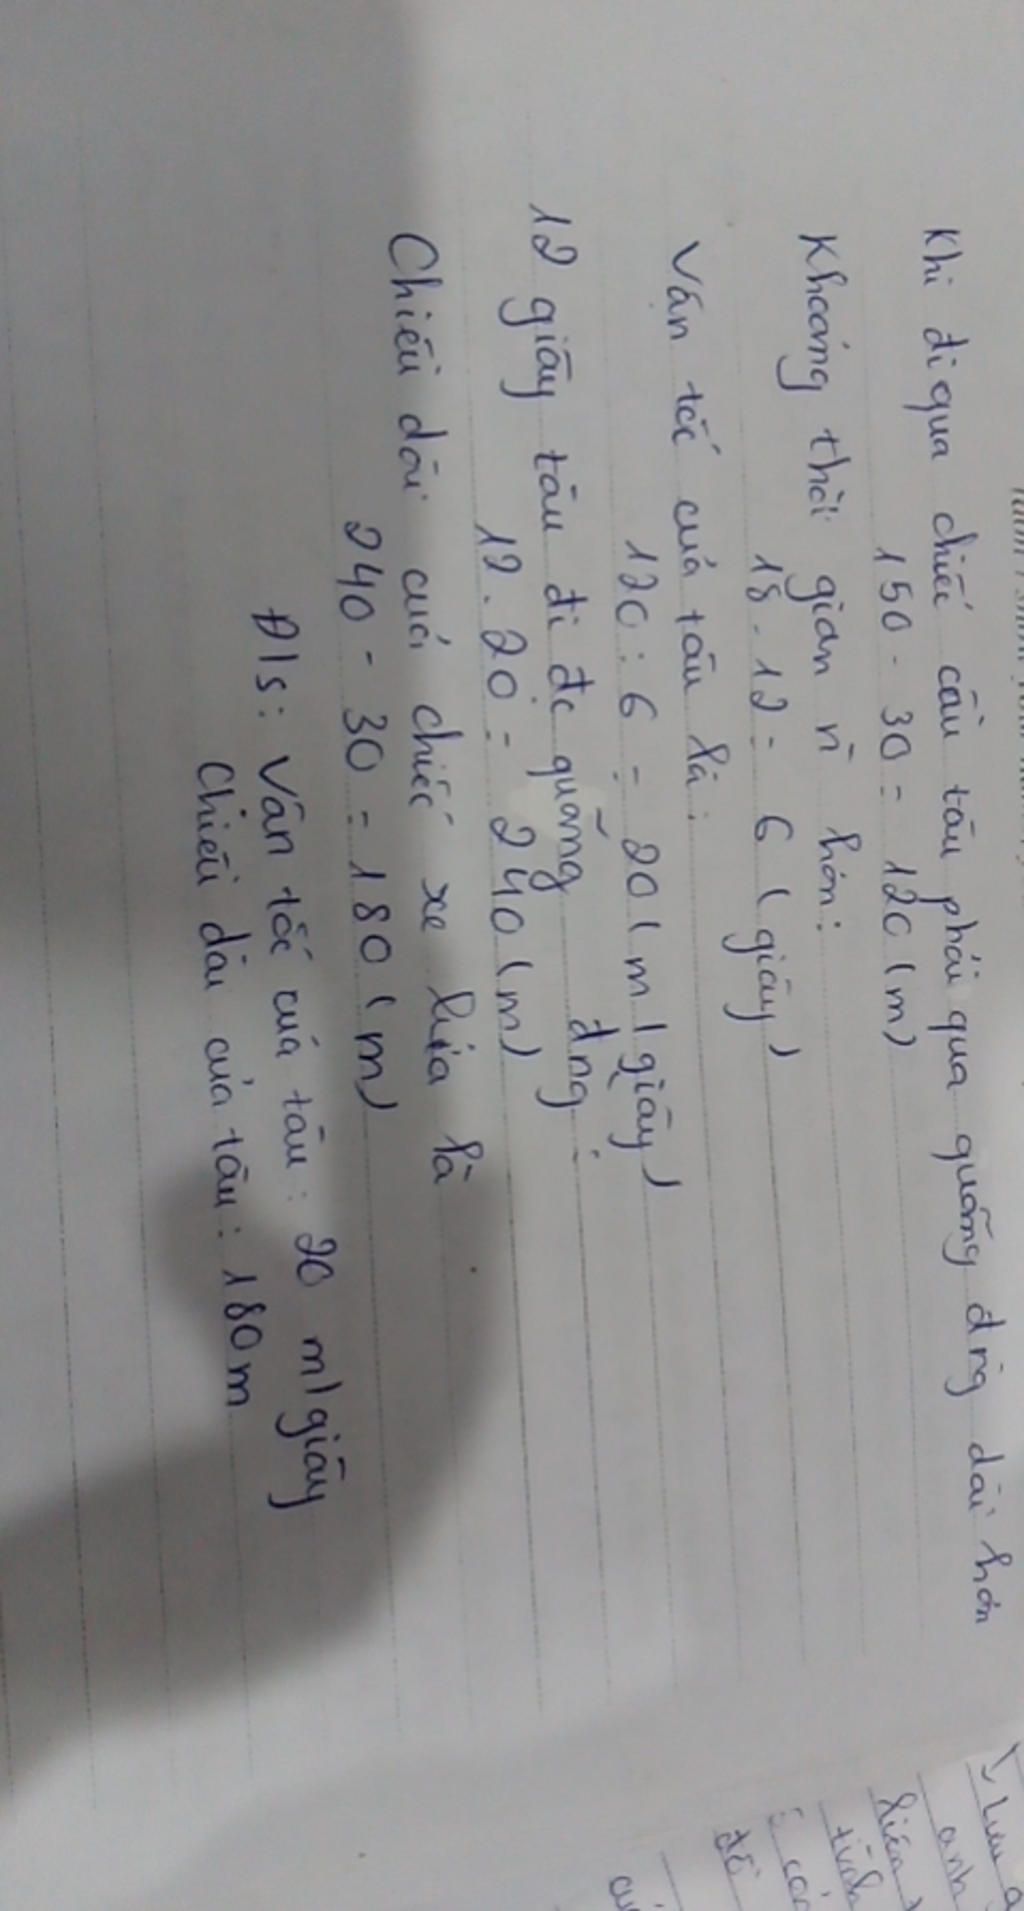 Khi đi qua chiếc cầu tàu phải qua quãng đrng dài hơn
150 - 30 = 120 (m)
Khoảng thời gian n` hơn:
18 - 12 = 6 (giây)
Vận tốc của tàu là:
120 : 6 = 20 (m/giây)
12 giây tàu đi đc quãng đrng:
12 . 20 = 240 (m)
Chiều dài của chiếc xe lửa là
240 - 30 = 180 (m)
Đ/s: Vận tốc của tàu: 20 m/giây
Chiều dài của tàu: 180m
anh
tính
đề